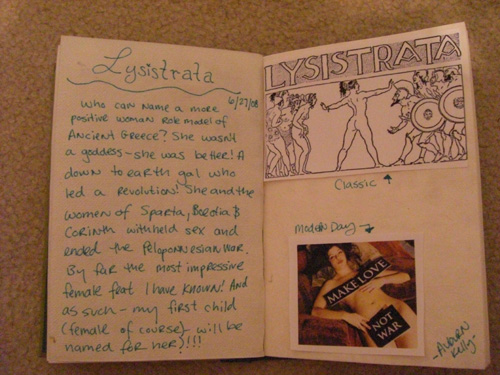 Lysistrata
6/27/08
Who can name a more
positive woman role model of
Ancient Greece? She wasn't
a goddess - she was better! A
down to earth gal who
led a revolution! She and the
women of Sparta, Boeotia &
Corinth withheld sex and
ended the Peloponnesian War.
By far the most impressive
female feat I have known! And
as such - my first child
(female of course) - will be
named for her!!!!
LYSISTRATA
Classic
Modern Day
MAKE LOVE
NOT
WAR
-Auburn
Kelly-